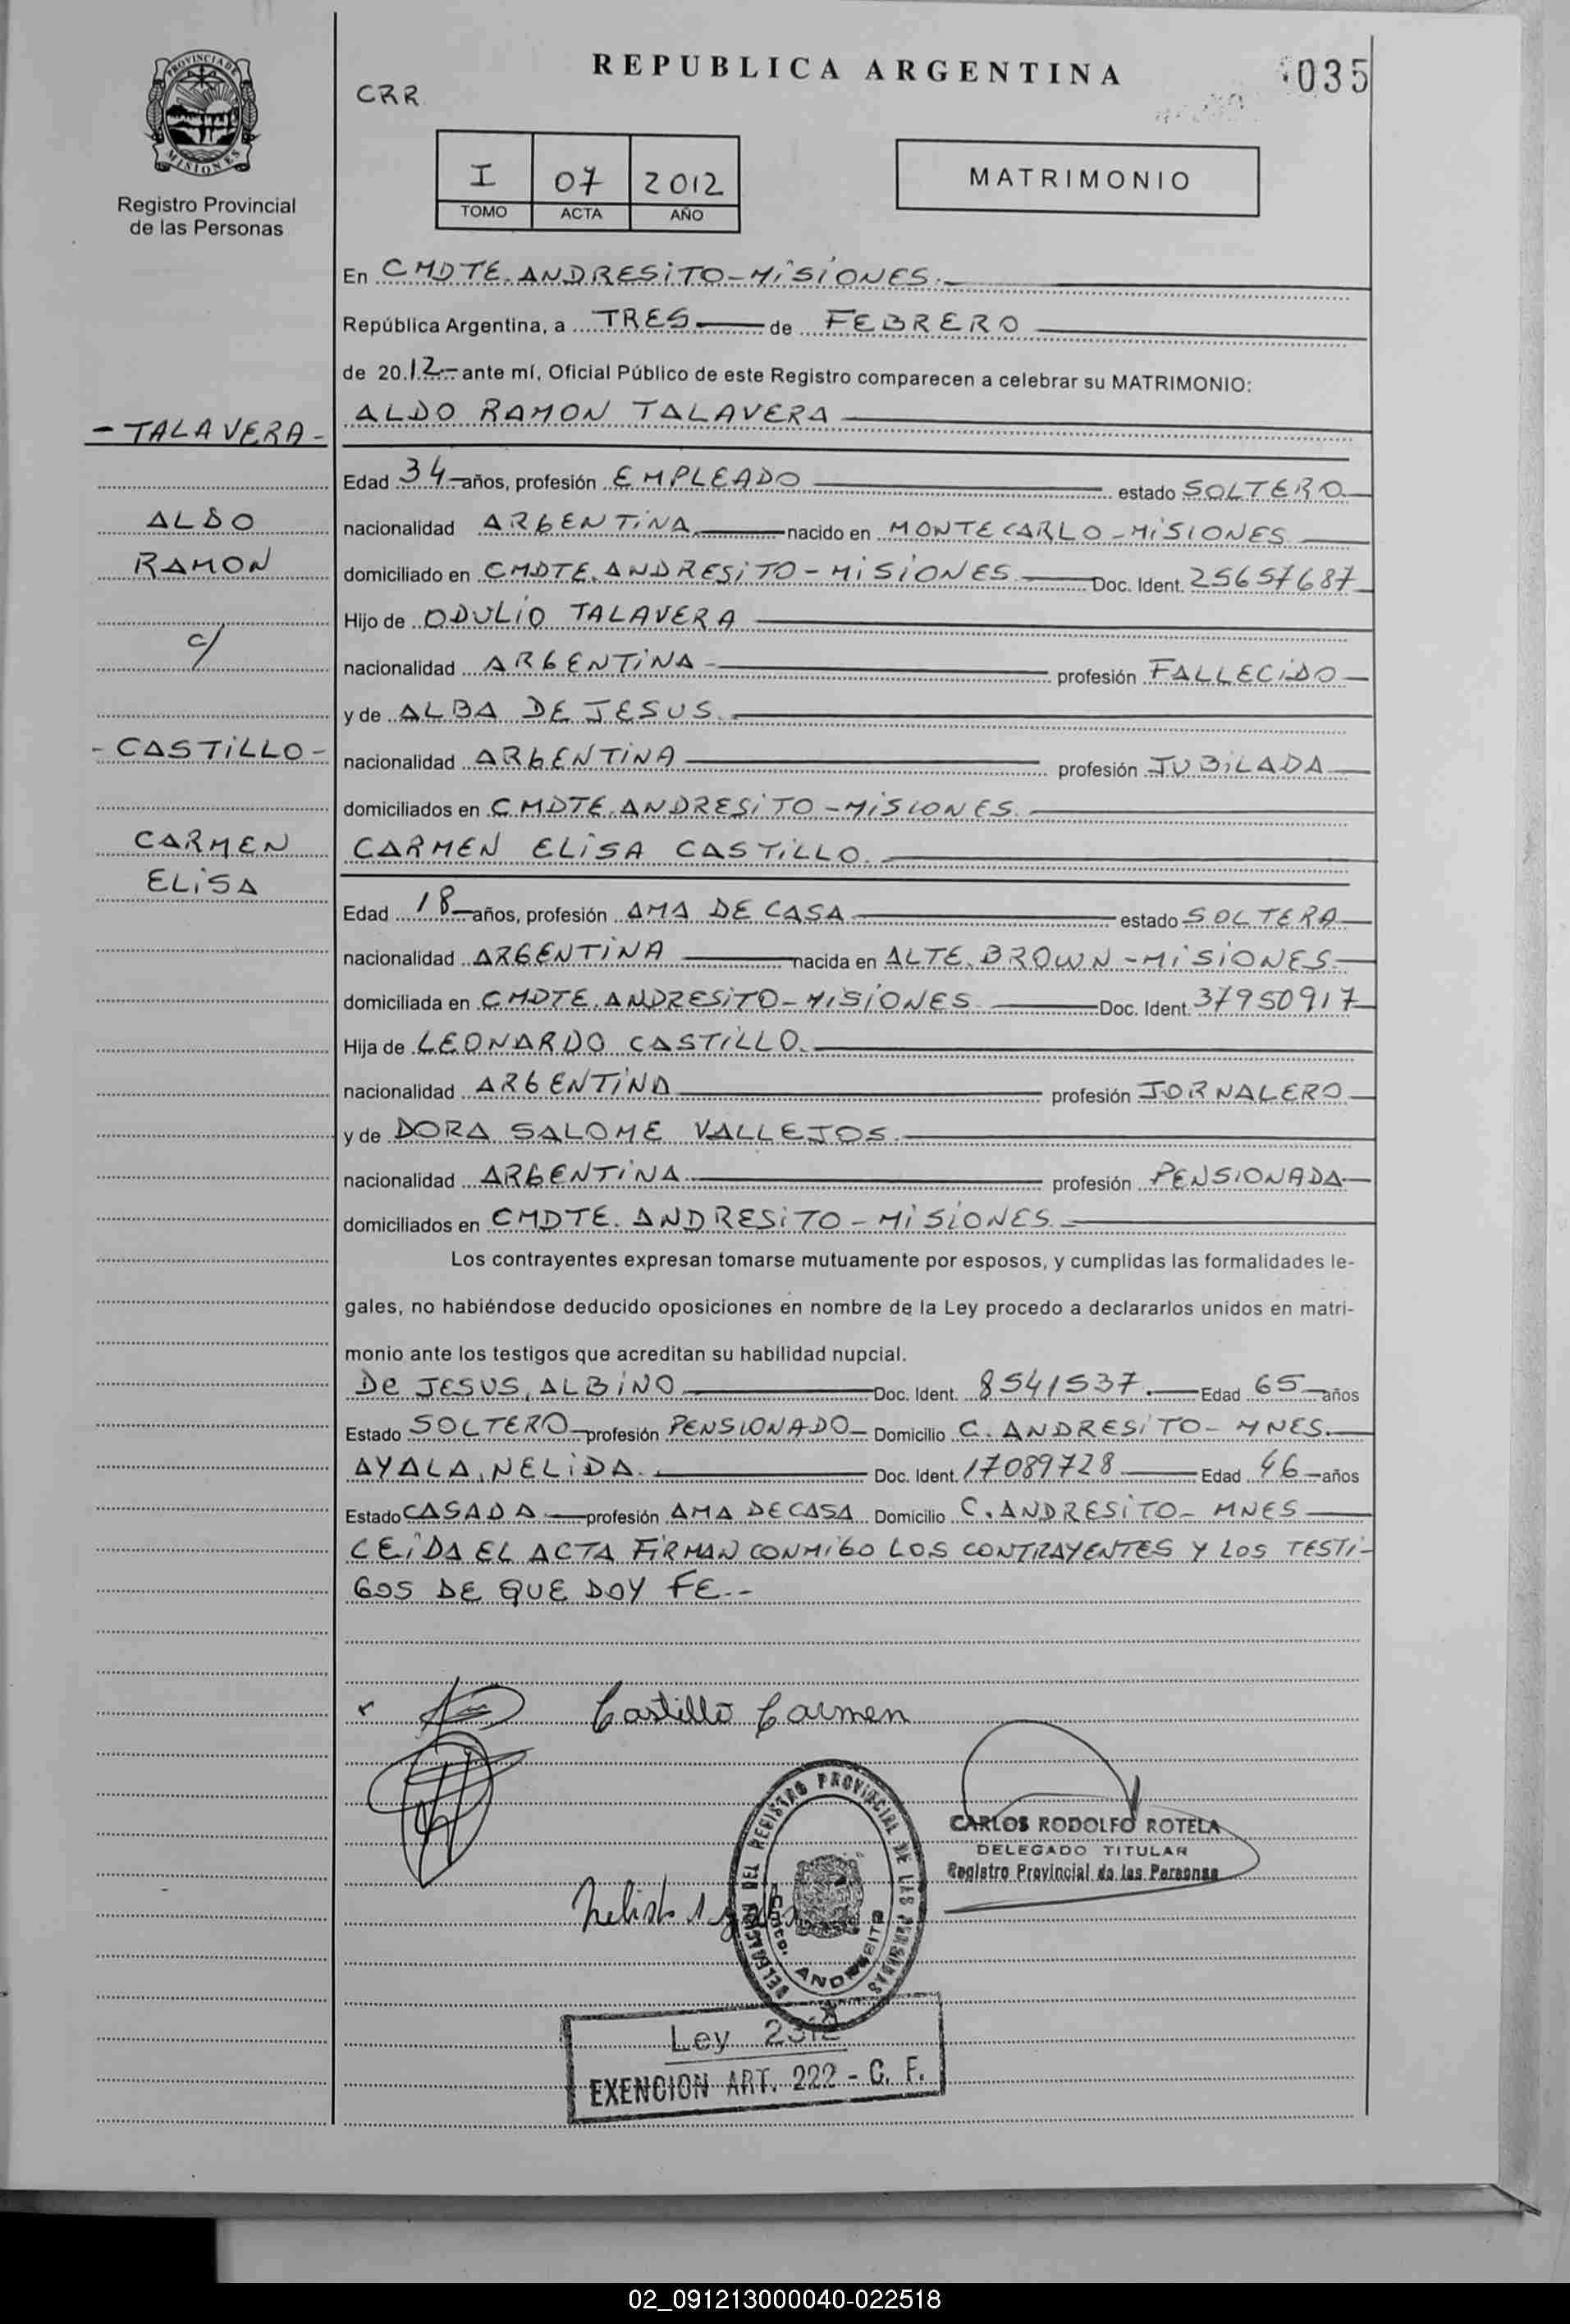 REPUBLICA ARGENTINA
035
PROVINCIA DE
MISIONES
Registro Provincial
de las Personas
CRR
I 07 2012
TOMO ACTA AÑO
MATRIMONIO
En CMDTE. ANDRESITO - MISIONES.
República Argentina, a TRES de FEBRERO
de 2012 ante mí, Oficial Público de este Registro comparecen a celebrar su MATRIMONIO:
ALDO RAMON TALAVERA
- TALAVERA -
Edad 34 años, profesión EMPLEADO estado SOLTERO
ALDO
nacionalidad ARGENTINA nacido en MONTECARLO - MISIONES
RAMON
domiciliado en CMDTE. ANDRESITO - MISIONES Doc. Ident. 25657687
Hijo de ODULIO TALAVERA
c/
nacionalidad ARGENTINA - profesión FALLECIDO
y de ALBA DE JESUS
- CASTILLO -
nacionalidad ARGENTINA profesión JUBILADA
domiciliados en CMDTE. ANDRESITO - MISIONES.
CARMEN
CARMEN ELISA CASTILLO.
ELISA
Edad 18 años, profesión AMA DE CASA estado SOLTERA
nacionalidad ARGENTINA nacida en ALTE. BROWN - MISIONES
domiciliada en CMDTE. ANDRESITO - MISIONES Doc. Ident. 37950917
Hija de LEONARDO CASTILLO.
nacionalidad ARGENTINA profesión JORNALERO
y de DORA SALOME VALLEJOS.
nacionalidad ARGENTINA profesión PENSIONADA
domiciliados en CMDTE. ANDRESITO - MISIONES.
Los contrayentes expresan tomarse mutuamente por esposos, y cumplidas las formalidades le-
gales, no habiéndose deducido oposiciones en nombre de la Ley procedo a declararlos unidos en matri-
monio ante los testigos que acreditan su habilidad nupcial.
De JESUS, ALBINO Doc. Ident. 8541537. Edad 65 años
Estado SOLTERO profesión PENSIONADO Domicilio C. ANDRESITO - MNES.
AYALA, NELIDA. Doc. Ident. 17089728 Edad 46 años
Estado CASADA profesión AMA DE CASA Domicilio C. ANDRESITO - MNES
LEIDA EL ACTA FIRMAN CONMIGO LOS CONTRAYENTES Y LOS TESTI-
GOS DE QUE DOY FE.-
Castillo Carmen
DELEGACION DEL REGISTRO PROVINCIAL DE LAS PERSONAS
CMDO. ANDRESITO
CARLOS RODOLFO ROTELA
DELEGADO TITULAR
Registro Provincial de las Personas
Ley 2312
EXENCION ART. 222 - C. F.
02_091213000040-022518